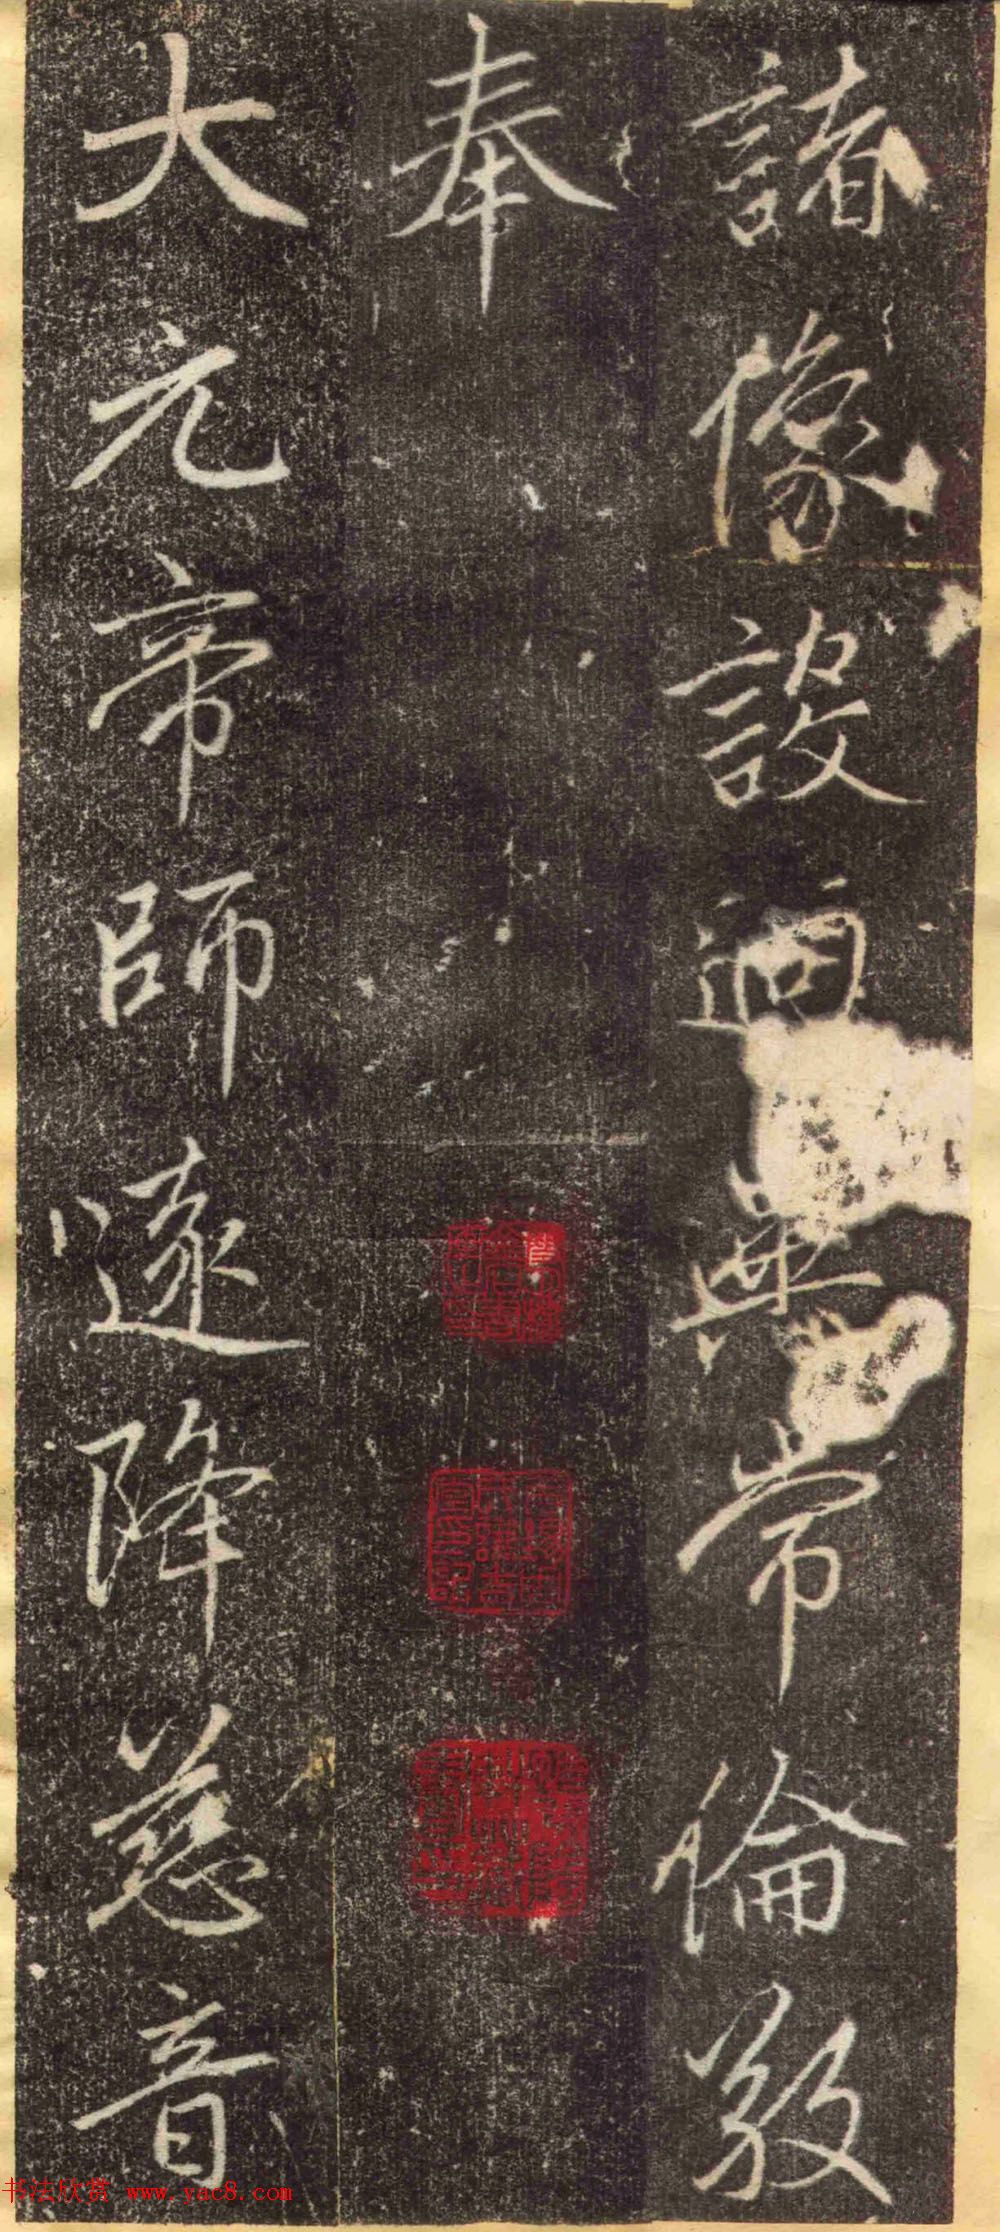 諸像設逈異常倫敬
奉
大元帝師遠降慈音
书法欣赏 www.yac8.com